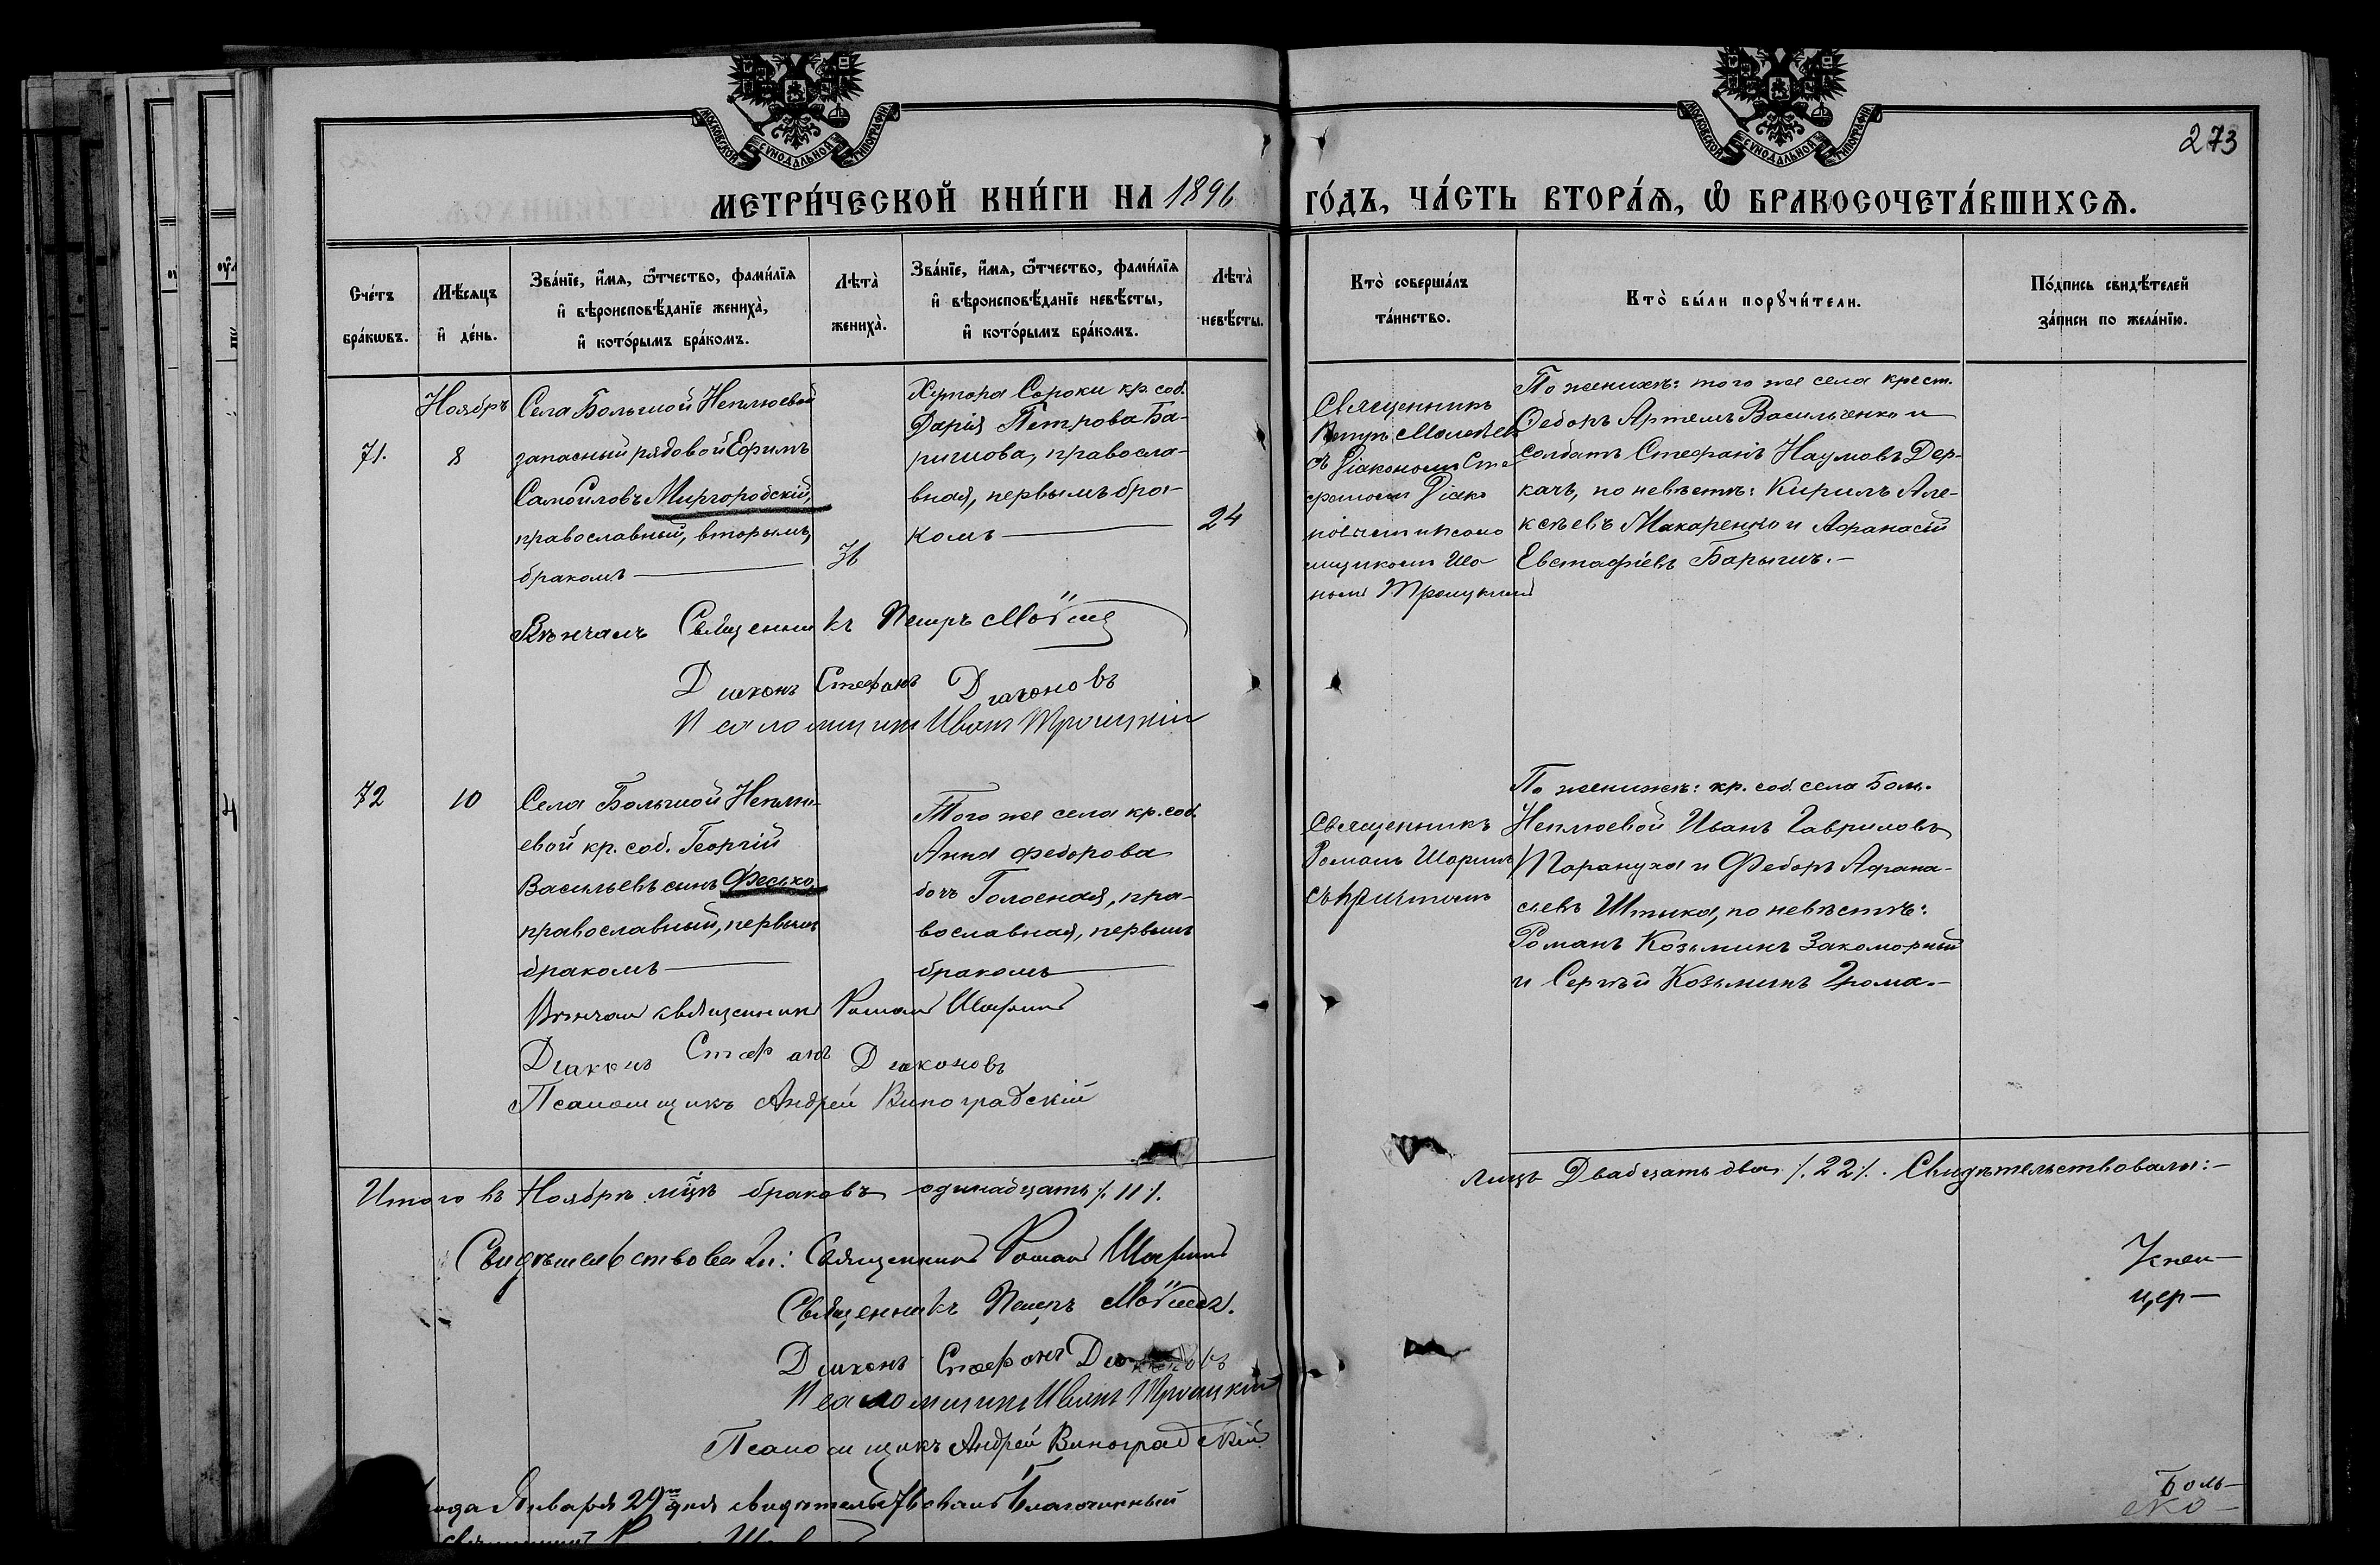 МОСКОВСКОЙ СѴНОДАЛЬНОЙ ТИПОГРАФІИ
МОСКОВСКОЙ СѴНОДАЛЬНОЙ ТИПОГРАФІИ
273
МЕТРИ́ЧЕСКОЙ КНИ́ГИ НА 1896 ГО́ДЪ, ЧА́СТЬ ВТОРА́Ѧ, Ѽ БРАКОСОЧЕТА́ВШИХСѦ.
Сче́тъ
бра́кѡвъ.
Мѣ́сяцъ
и҆ де́нь.
Зва́нїе, и҆́мя, ѻ҆́тчество, фами́лїя
и҆ вѣроисповѣ́данїе жениха̀,
и҆ кото́рымъ бра́комъ.
Лѣта̀
жениха̀.
Зва́нїе, и҆́мя, ѻ҆́тчество, фами́лїя
и҆ вѣроисповѣ́данїе невѣ́сты,
и҆ кото́рымъ бра́комъ.
Лѣта̀
невѣ́сты.
Кто̀ соверша́лъ
та́инство.
Кто̀ бы́ли порꙋчи́тели.
По́дпись свидѣ́телей
за́писи по жела́нїю.
71.
Ноябрь
8
Села Большой Неплюевой
запасный рядовой Ефимъ
Самойловъ Миргородскій,
православный, вторымъ
бракомъ
36
Хутора Сороки кр. соб.
Дарія Петрова Ба-
ришова, правосла-
вная, первымъ бра-
комъ
24
Священникъ
Петръ
съ Діакономъ Сте
фаномъ Діако
новымъ и псало
мщикомъ Ива
номъ Троицкимъ
По женихѣ: того же села крест.
Ѳедоръ Артемъ Васильченко и
солдатъ Стефанъ Наумовъ Дер-
качъ, по невѣстѣ: Кирилъ Але-
ксѣевъ Макаренко и Афанасій
Евстафіевъ Барышъ.—
Вѣнчалъ Священникъ Петръ
Діаконъ Стефанъ Діаконовъ
Псаломщикъ Иванъ Троицкій
72
10
Села Большой Неплю-
евой кр. соб. Георгій
Васильевъ сынъ Фесько,
православный, первымъ
бракомъ
Того же села кр. соб.
Анна Федорова
дочь Голосная, пра-
вославная, первымъ
бракомъ
Священникъ
Романъ
съ причтомъ
По женихѣ: кр. соб. села Боль.
Неплюевой Иванъ Гавриловъ
Парануха и Федоръ Афана-
сіевъ Штыка, по невѣстѣ:
Романъ Козьминъ Закоморный
и Сергѣй Козьминъ Грома.—
Вѣнчалъ священникъ Романъ
Діаконъ Стефанъ Діаконовъ
Псаломщикъ Андрей Виноградскій
Итого въ Ноябрѣ м͠цѣ браковъ одинадцать /. 11 /.
лицъ Двадцать два /. 22 /. Свидѣтельствовали:—
Свидѣтельствовали: Священникъ Романъ
Священникъ Петръ
Діаконъ Стефанъ Діаконовъ
Псаломщикъ Иванъ Троицкій
Псаломщикъ Андрей Виноградскій
года Января 29 дня свидѣтельствовалъ Благочинный
Успен—
цер—
Боль—
ско—